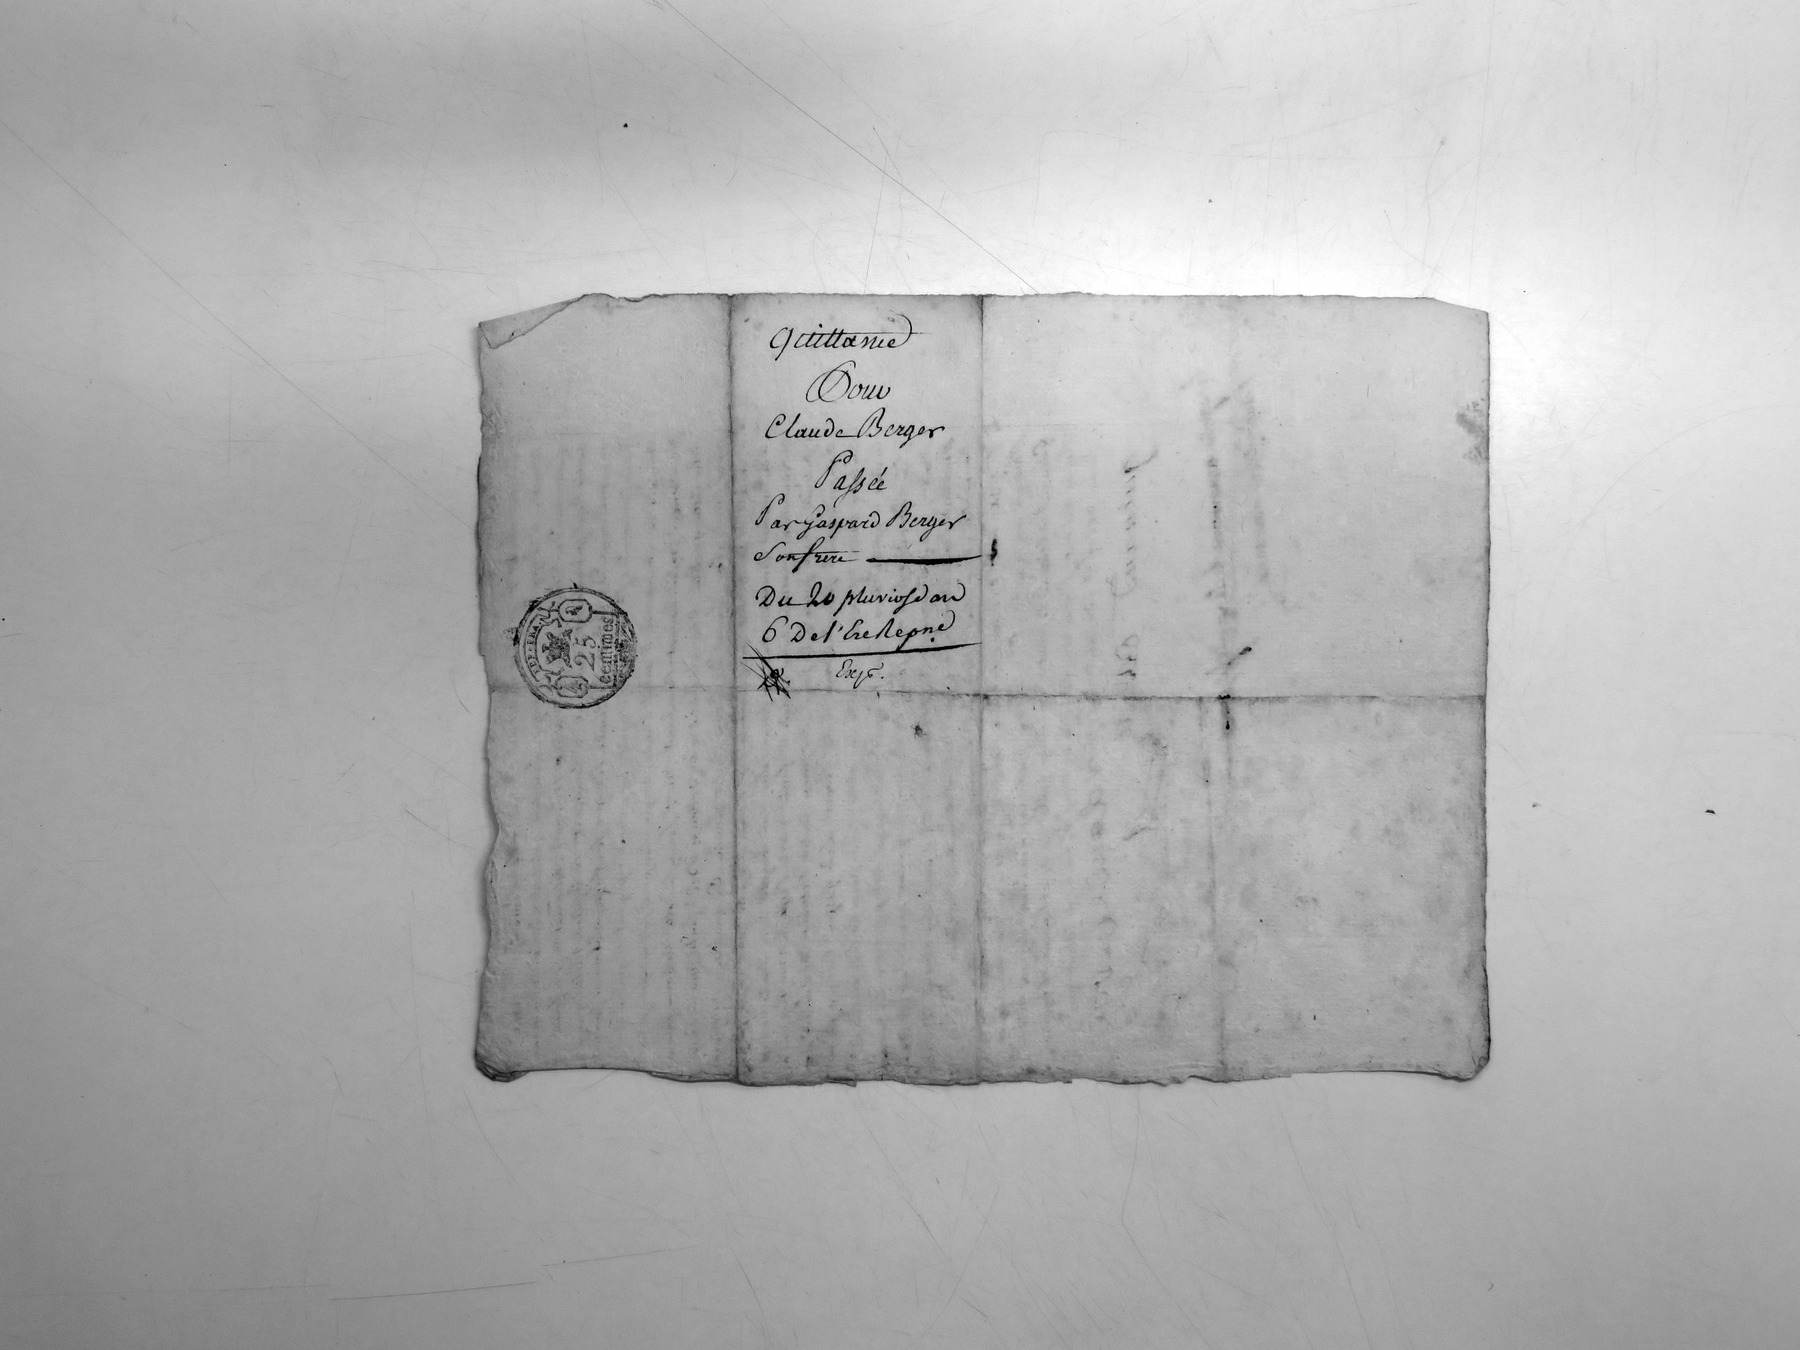 quittance
Pour
Claude Berger
Passée
Par Gaspard Berger
Son frere
Du 20 pluviose an
6 De l'Ere Repne
Expn.
REP. FRA.
25
Centimes